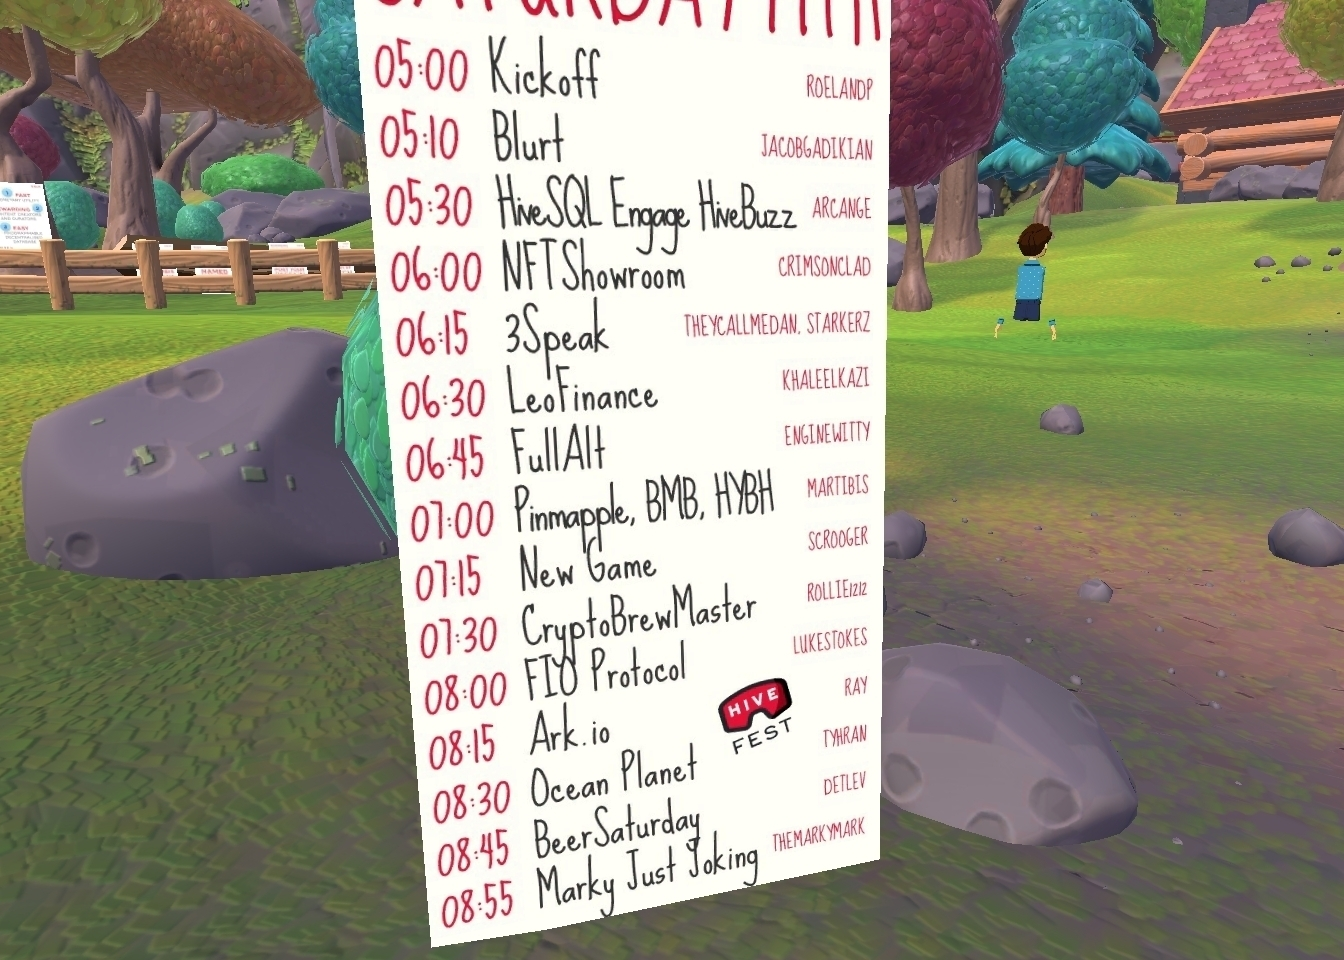 05:00 Kickoff ROELANDP
05:10 Blurt JACOBGADIKIAN
05:30 HiveSQL Engage HiveBuzz ARCANGE
06:00 NFTShowroom CRIMSONCLAD
06:15 3Speak THEYCALLMEDAN, STARKERZ
06:30 LeoFinance KHALEELKAZI
06:45 FullAlt ENGINEWITTY
07:00 Pinmapple, BMB, HYBH MARTIBIS
07:15 New Game SCROOGER
07:30 CryptoBrewMaster ROLLIE1212
08:00 FIO Protocol LUKESTOKES
08:15 Ark.io RAY
08:30 Ocean Planet TYHRAN
08:45 BeerSaturday DETLEV
08:55 Marky Just Joking THEMARKYMARK
HIVE
FEST